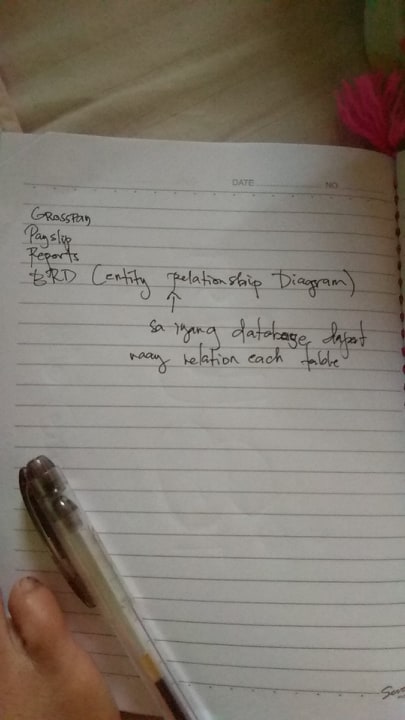 DATE NO
GrossPay
Payslip
Reports
ERD (entity relationship Diagram)
↑
sa iyang database, dapat
naay relation each table